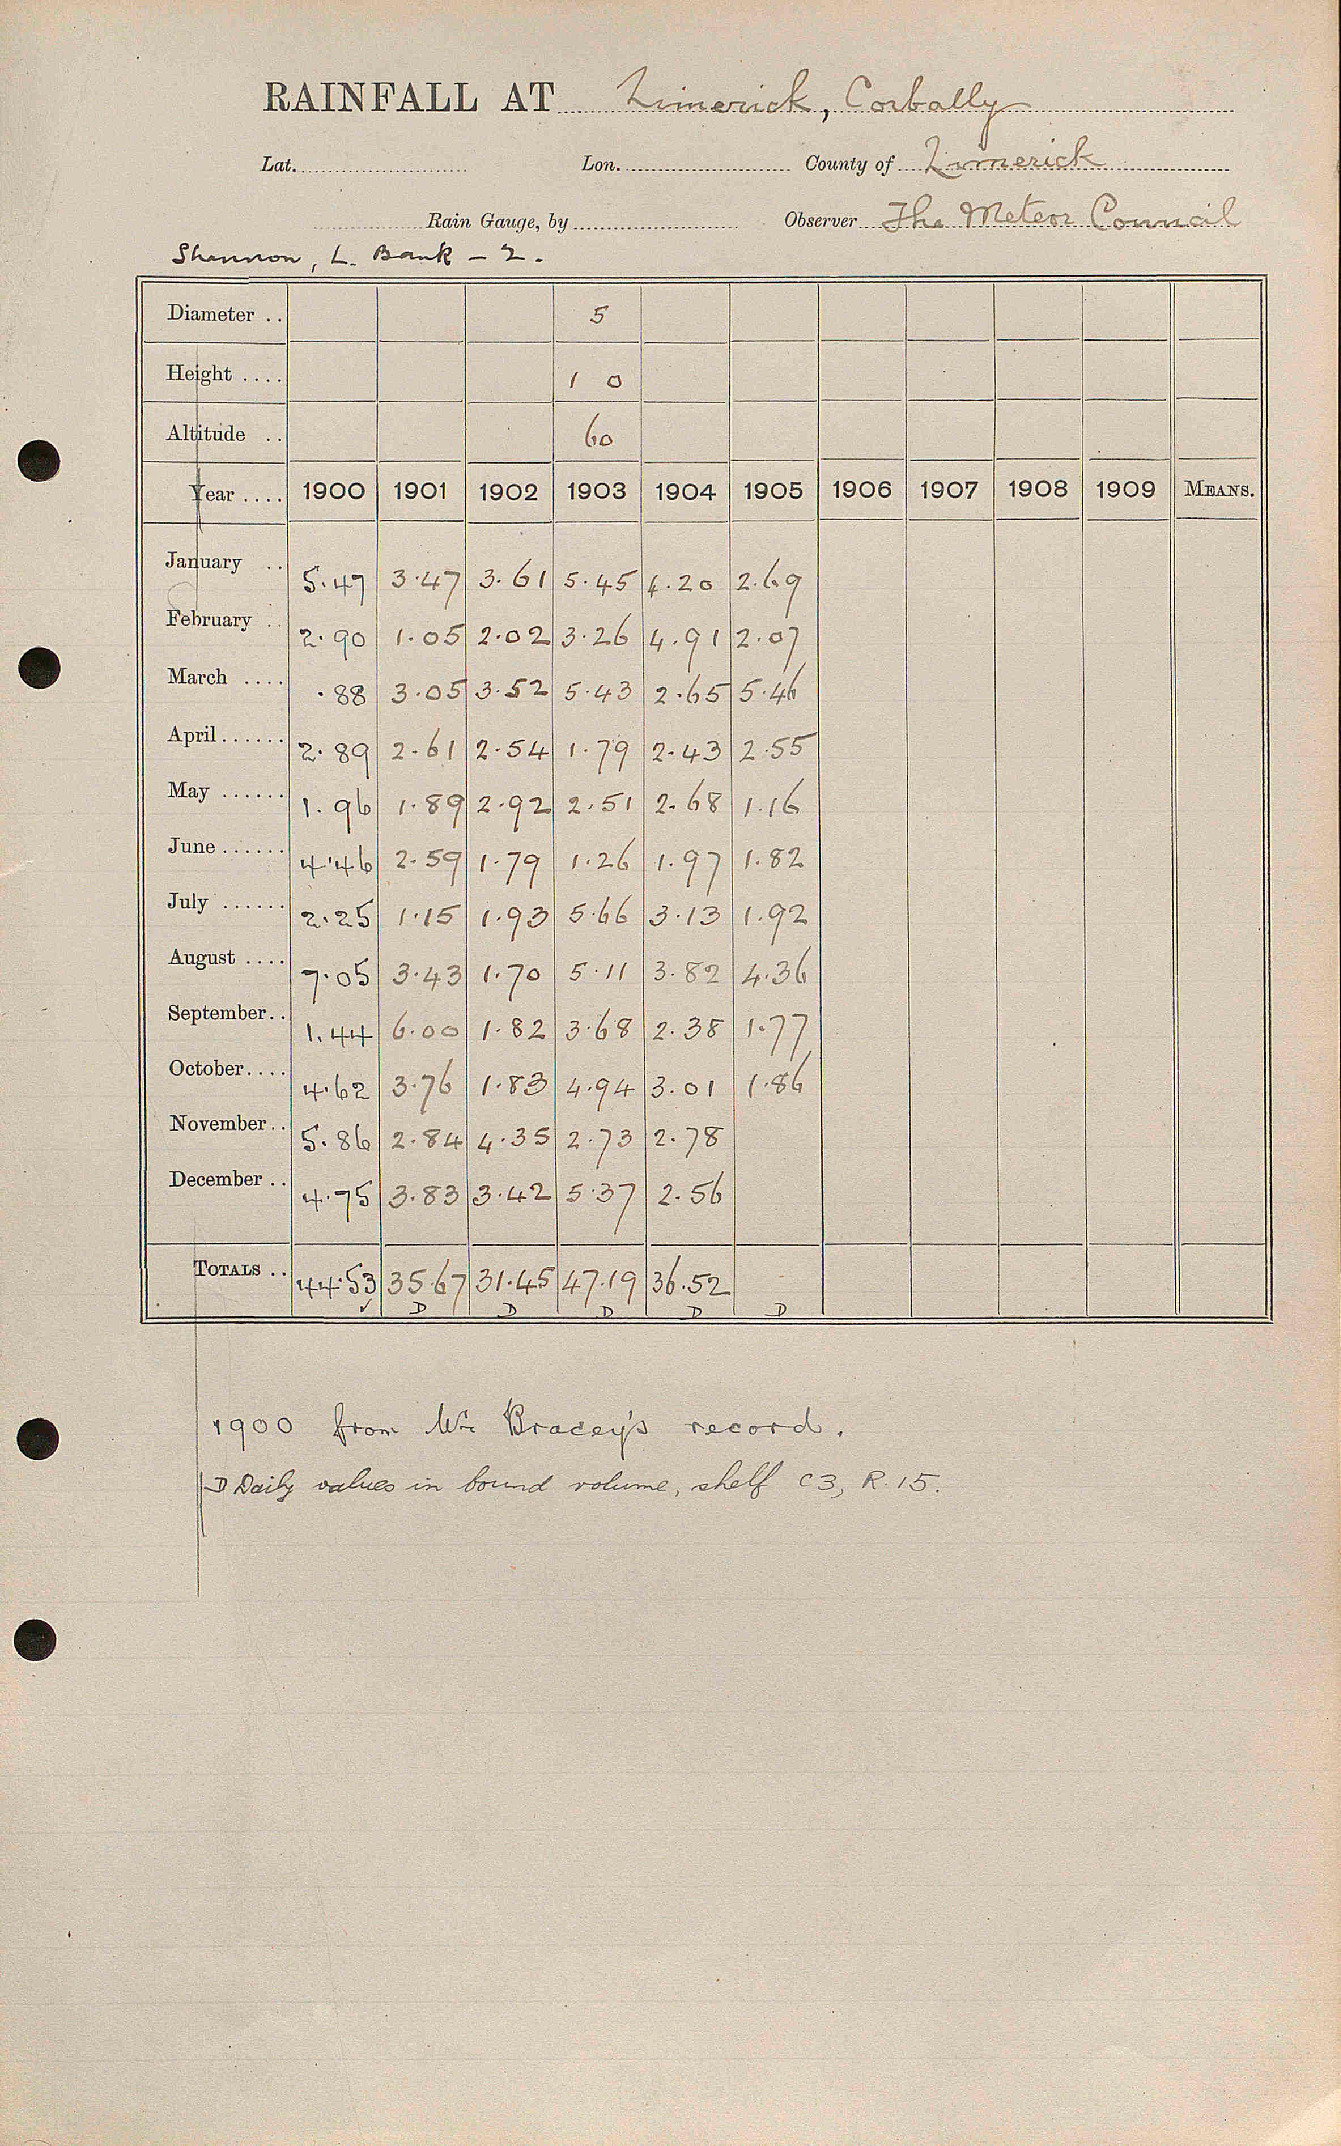 RAINFALL AT Limerick, Corbally
Lat. Lon. County of Limerick
Rain Gauge, by Observer The Meteor Council
Shannon, L. Bank - 2.
Diameter .. 5
Height .... 1 0
Altitude .. 60
Year .... 1900 1901 1902 1903 1904 1905 1906 1907 1908 1909 MEANS.
January .. 5.47 3.47 3.61 5.45 4.20 2.69
February .. 2.90 1.05 2.02 3.26 4.91 2.07
March .... .88 3.05 3.52 5.43 2.65 5.46
April ...... 2.89 2.61 2.54 1.79 2.43 2.55
May ...... 1.96 1.89 2.92 2.51 2.68 1.16
June ...... 4.46 2.59 1.79 1.26 1.97 1.82
July ...... 2.25 1.15 1.93 5.66 3.13 1.92
August .... 7.05 3.43 1.70 5.11 3.82 4.36
September.. 1.44 6.00 1.82 3.68 2.38 1.77
October.... 4.62 3.76 1.83 4.94 3.01 1.86
November.. 5.86 2.84 4.35 2.73 2.78
December .. 4.75 3.83 3.42 5.37 2.56
TOTALS .. 44.53 35.67 31.45 47.19 36.52
✓ D D D D D
1900 from Mr Bracey's record.
D Daily values in bound volume, shelf C3, R.15.